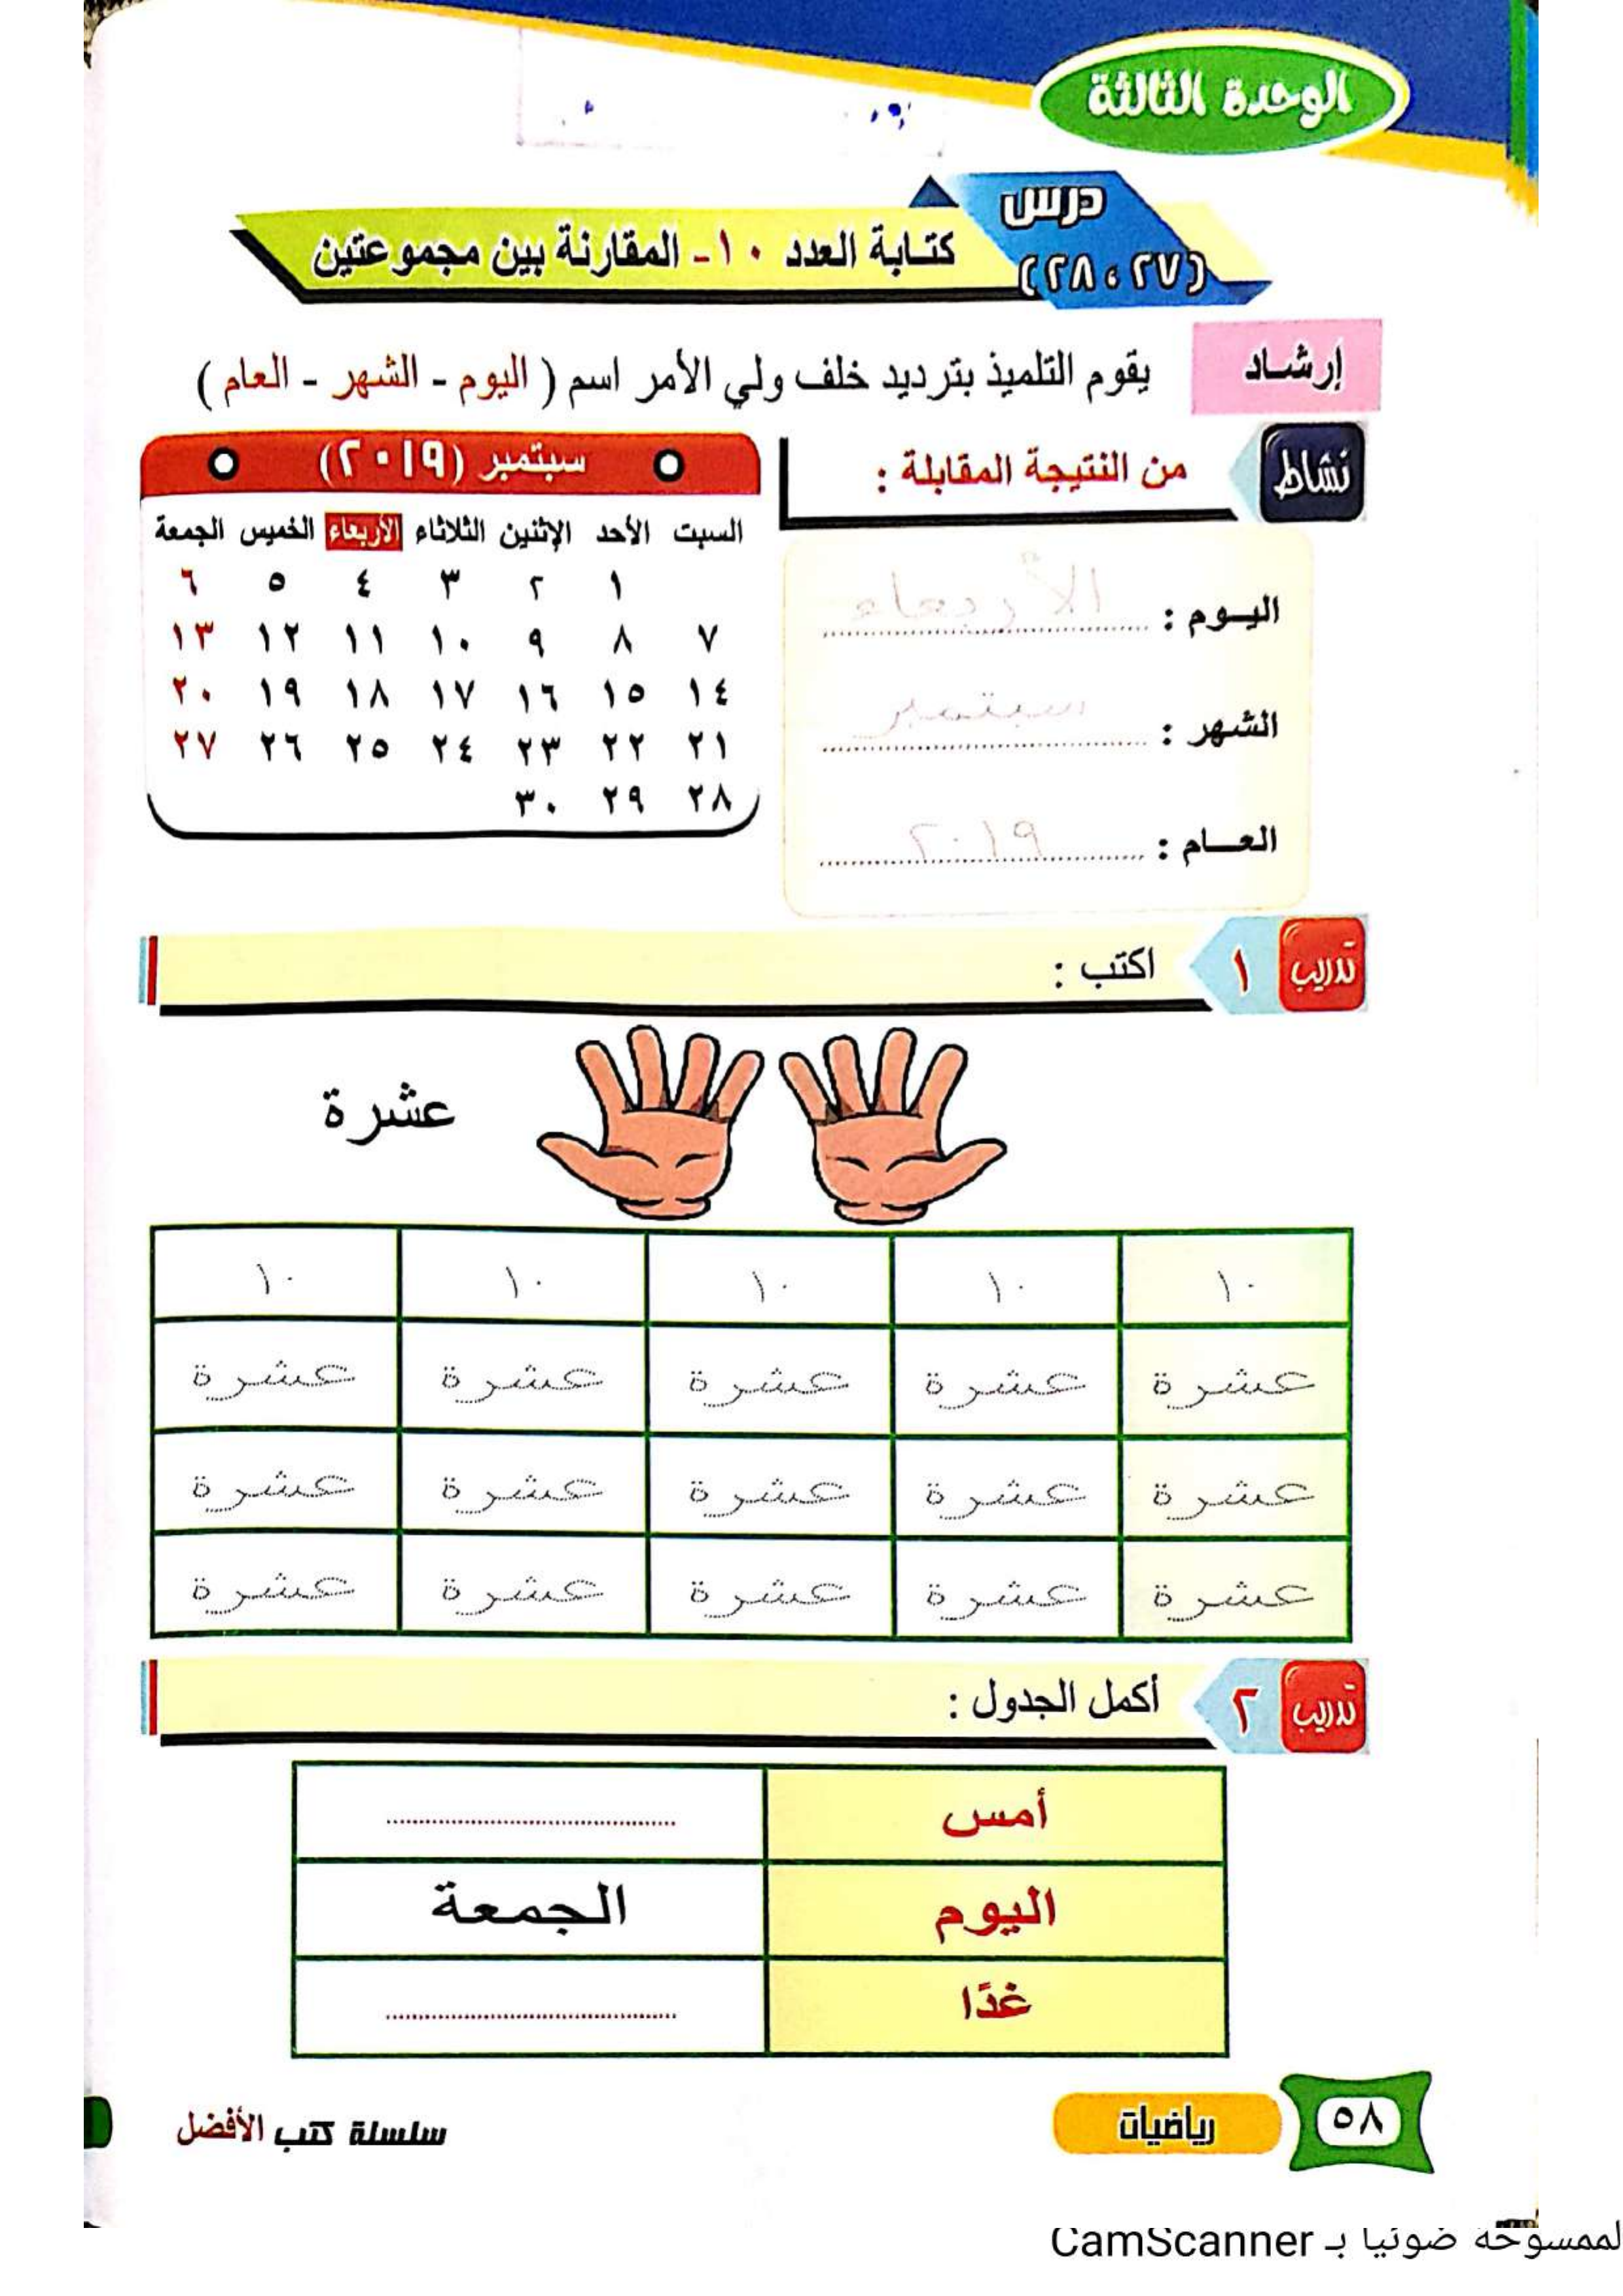 الوحدة الثالثة
درس
(٢٧ ، ٢٨)
كتابة العدد ١٠ - المقارنة بين مجموعتين
إرشاد
يقوم التلميذ بترديد خلف ولي الأمر اسم ( اليوم - الشهر - العام )
نشاط
من النتيجة المقابلة :
اليوم : الأربعاء
الشهر : سبتمبر
العام : ٢٠١٩
سبتمبر (٢٠١٩)
السبت الأحد الإثنين الثلاثاء الأربعاء الخميس الجمعة
١ ٢ ٣ ٤ ٥ ٦
٧ ٨ ٩ ١٠ ١١ ١٢ ١٣
١٤ ١٥ ١٦ ١٧ ١٨ ١٩ ٢٠
٢١ ٢٢ ٢٣ ٢٤ ٢٥ ٢٦ ٢٧
٢٨ ٢٩ ٣٠
تدريب ١ اكتب :
عشرة
١٠ ١٠ ١٠ ١٠ ١٠
عشرة عشرة عشرة عشرة عشرة
عشرة عشرة عشرة عشرة عشرة
عشرة عشرة عشرة عشرة عشرة
تدريب ٢ أكمل الجدول :
أمس
اليوم الجمعة
غدًا
٥٨ رياضيات
سلسلة كتب الأفضل
الممسوحة ضوئيا بـ CamScanner